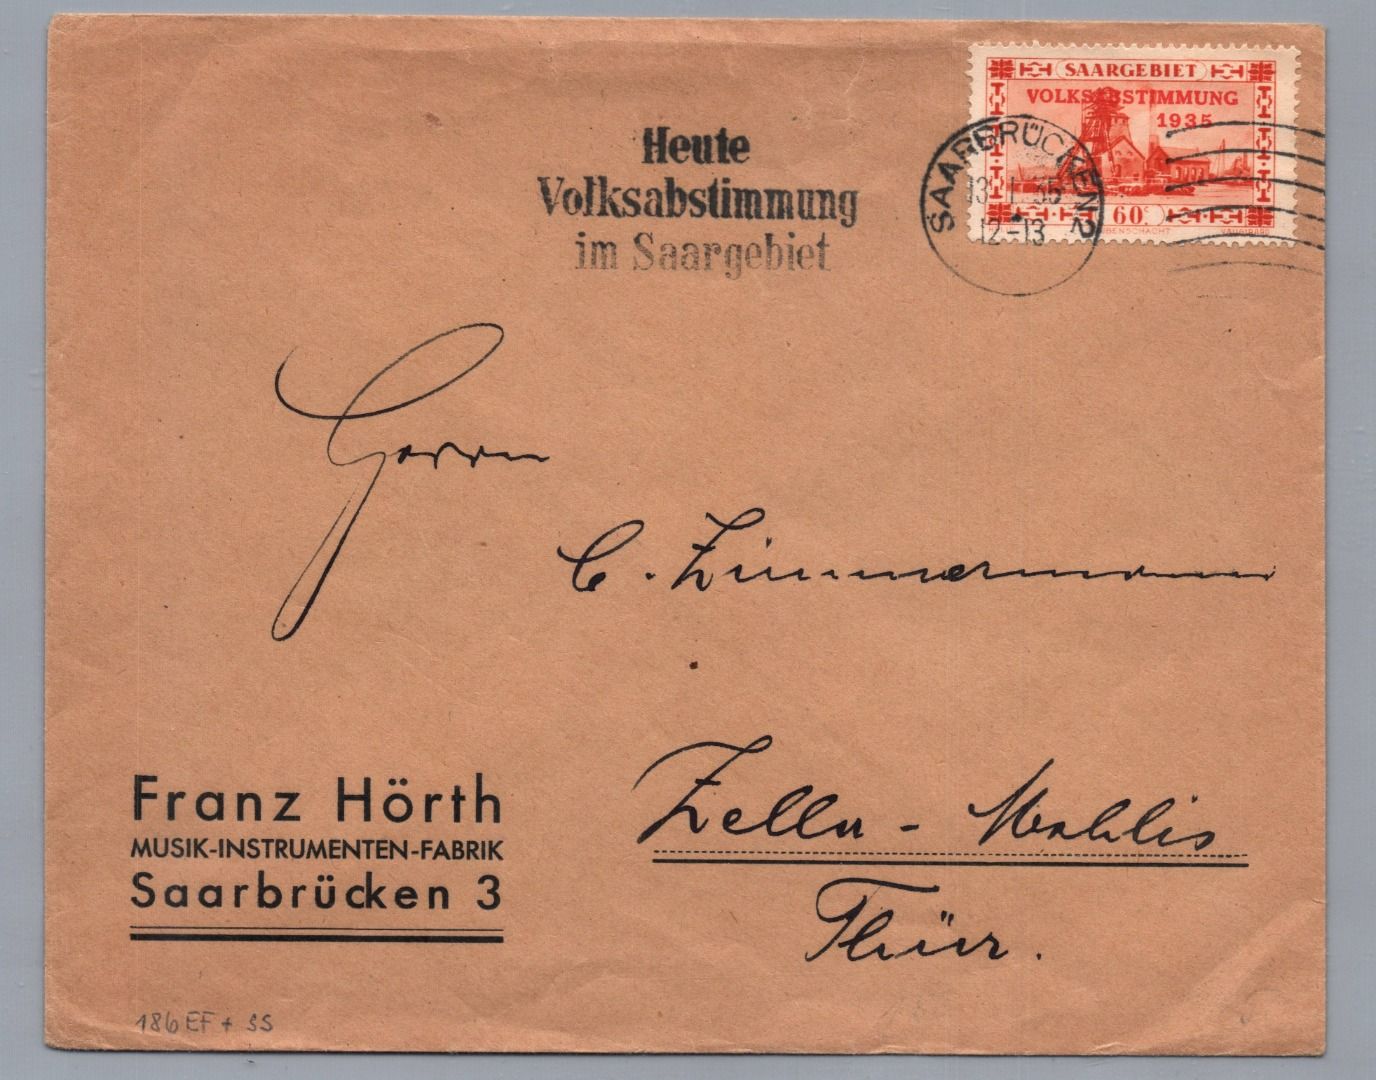 SAARGEBIET
VOLKSABSTIMMUNG
1935
60c
Heute
Volksabstimmung
im Saargebiet
SAARBRÜCKEN 2
13.1.35
12-13
Herrn
C. Zimmermann
Zella-Mehlis
Thür.
Franz Hörth
MUSIK-INSTRUMENTEN-FABRIK
Saarbrücken 3
186 EF + SS